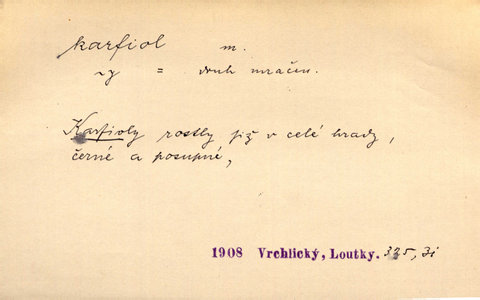 karfiol m.
~y = druh mračen.
Karfioly rostly již v celé hrady,
černé a posupné,
1908 Vrchlický, Loutky. 325, 31